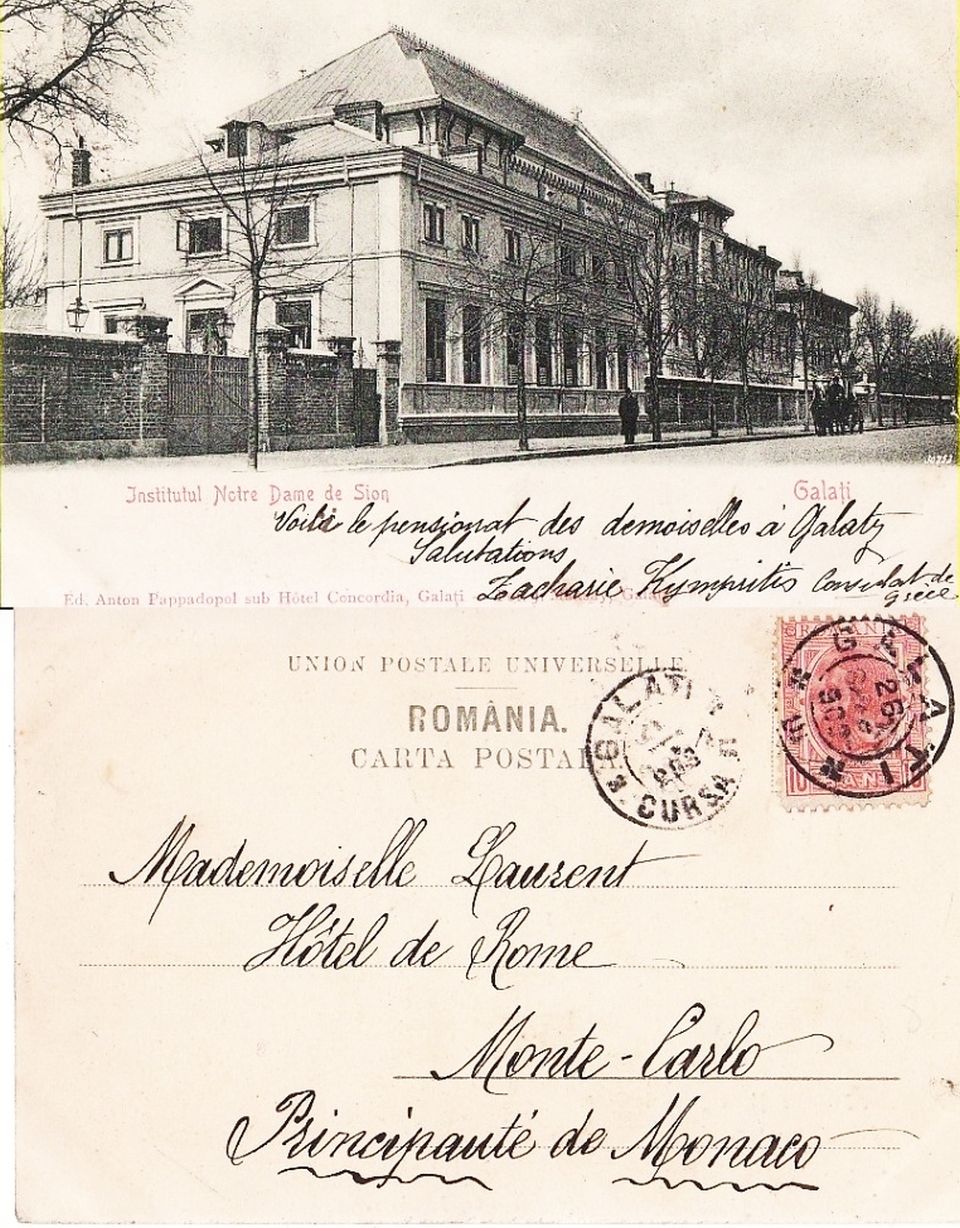 10753
Institutul Notre Dame de Sion
Galați
Voilà le pensionat des demoiselles à Galatz
Salutations
Zacharie Kympritis Consulat de
Grèce
Ed. Anton Pappadopol sub Hôtel Concordia, Galați
UNION POSTALE UNIVERSELLE.
ROMÂNIA.
CARTA POSTALĂ
GALATI
CURSA
GALATI
26
Mademoiselle Laurent
Hôtel de Rome
Monte-Carlo
Principauté de Monaco